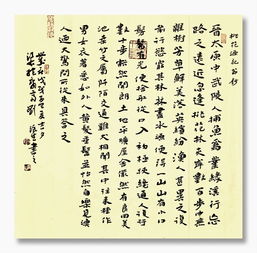 桃花源記節抄
晉太原中武陵人捕魚為業緣溪行忘
路之遠近忽逢桃花林夾岸數百步中無
雜樹芳草鮮美落英繽紛漁人甚異之復
前行欲窮其林林盡水源便得一山山有小口
髣髴有光便捨船從口入初極狹纔通人復行
數十步豁然開朗土地平曠屋舍儼然有良田美
池桑竹之屬阡陌交通雞犬相聞其中往來種作
男女衣著悉如外人黃髮垂髫並怡然自樂見漁
人迺大驚問所從來具答之